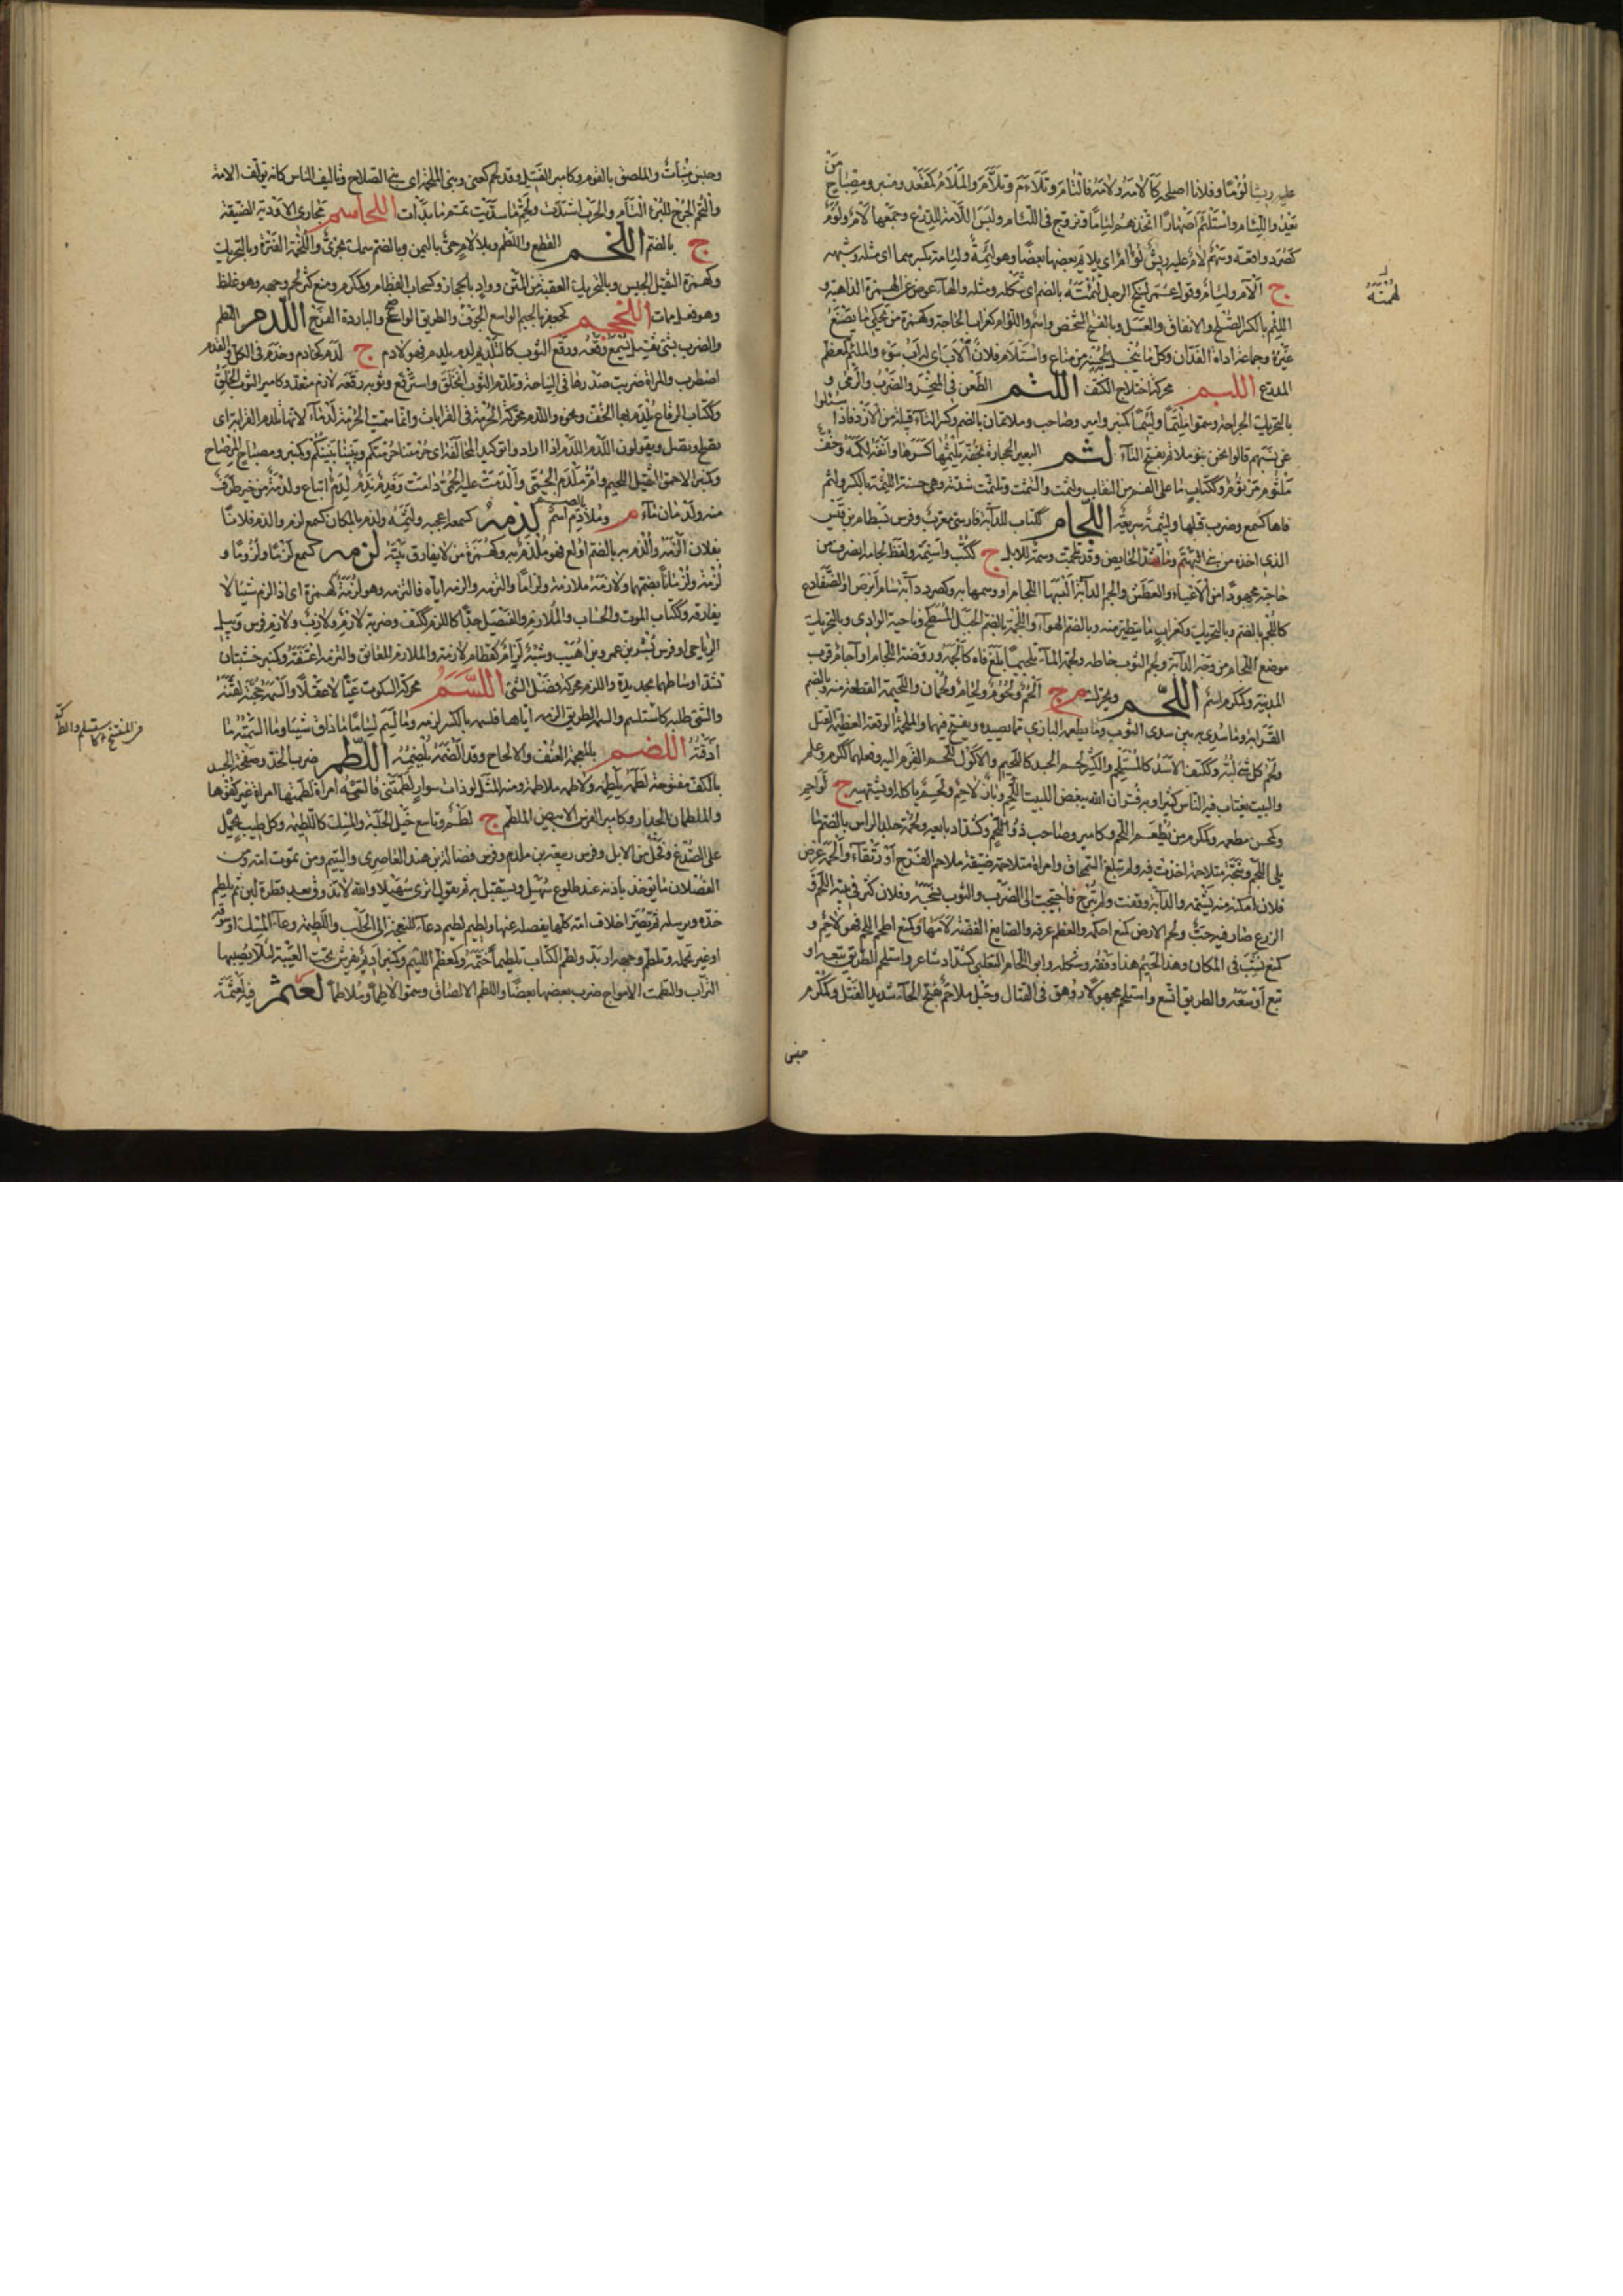 عليه ريشا لؤما وفلانا اصلحه كألأمه ولاءمه فالتأم وتلاءم وتلأّم والملأم كمقعد ومنبر ومصباح من
يعذر اللئام واستلأم اصهارا اتخذهم لئاما وتزوج في اللئام ولبس اللأمة للدرع وجمعها لأم ولؤم
كصرد وافقه وسهم لأم عليه ريش لؤام اي يلائم بعضها بعضا وهو لئمه ولئامه بكسرهما اي مثله وشبهه
ج ألآم ولئام وقول عمر لينكح الرجل لمته بالضم اي شكله ومثله والهاء عوض عن الهمزة الذاهبة و
اللئم بالكسر الصلح والاتفاق والعسل وبالفتح الشخص واسم واللؤام كغراب الحاجة وكهمزة من يحكي ما يصنع
غيره وجماعة اداة الفدان وكل ما يبخل به لحسنه من متاع واستلأم فلان الأب اي له اب سوء والملئم كمعظم
المدرع اللبم محركة اختلاج الكتف اللتم الطعن في المنحر والضرب والرمي و
بالتحريك الجراحة وسموا ملتما ولتيما كمنبر وامير وصاحب وملاتمات بالضم وكسر التاء قبيلة من الازد فاذا سئلوا
عن نسبهم قالوا نحن بنو ملاتم بفتح التاء لثم البعير الحجارة بخفه يلثمها كسرها وانفه لكمه وخف
ملثوم مرثوم وككتاب ما على الفم من النقاب ولثمت والتثمت وتلثمت شدته وهي حسنة اللثمة بالكسر ولثم
فاها كسمع وضرب قبلها ولثمة سريعة اللجام ككتاب للدابة فارسي معرب وفرس بسطام بن قيس
الذي اخذه من بني الهيثم وما تشده الحائض وقد تلجمت وسمة للابل ج ككتب والجمة ولفظ لجامه انصرف من
حاجته مجهودا من الاعياء والعطش والجم الدابة البسها اللجام او وسمها به وكصرد دابة او سام ابرص او الضفادع
كاللجم بالضم وبالتحريك وكغراب ما يتطير منه وبالضم الهواء واللجمة بالضم الجبل المسطح وناحية الوادي وبالتحريك
موضع اللجام من وجه الدابة ولجم الثوب خاطه ولجمه الماء تلجيما بلغ فاه كألجمه وروضة اللجام او آجام قرب
المدينة وكمكرم اسم اللحم ويحرك م ج الحم ولحوم ولحام ولحمان واللحمة القطعة منه وبالضم
القرابة وما سدي به بين سدى الثوب وما يطعمه البازي مما يصيده ويفتح فيهما والملحمة الوقعة العظيمة القتل
ولحم كل شيء لبه وككتف الاسد كالمستلحم والكثير لحم الجسد كاللحيم والاكول للحم القرم اليه وفعلهما ككرم وعلم
والبيت يغتاب فيه الناس كثيرا وبه فسر ان الله يبغض البيت اللحم وباز لاحم ولحم ياكله او يشتهيه ج لواحم
وكمحسن مطعمه وكمكرم من يطعم اللحم وكامير وصاحب ذو اللحم وكشداد بايعه ولحمة جلدة الراس بالضم ما
يلي اللحم وشجة متلاحمة اخذت فيه ولم تبلغ السمحاق وامراة متلاحمة ضيقة ملاحم الفرج او رتقاء وألحمه عرض
فلان امكنه منه يشتمه والدابة وقفت ولم تبرح فاحتيجت الى الضرب والثوب نسجه وفلان كثر في بيته اللحم و
الزرع صار فيه حب ولحم الامر كمنع احكمه والعظم عرقه والصايغ الفضة لأمها وكمنع اطعم اللحم فهو لاحم و
كمنع نشب في المكان وهذا لحيم هذا وفقه وشكله وابو اللحام التغلبي كشداد شاعر واستلحم الطريق تبعه او
تبع اوسعه والطريق اتسع واستلحم مجهولا روهق في القتال وحبل ملاحم بفتح الحاء شديد الفتل وكمكرم
حبس
لمته
وجنس من ثياب والملصق بالقوم وكامير القتيل وقد لحم كعني ونبي الملحمة اي نبي الصلاح وتاليف الناس كانه يؤلف الامة
والتحم الجرح للبرء التأم والحرب اشتدت ولحم ما سديت تمم ما بدات اللحاسم مجاري الاودية الضيقة
ج بالضم اللخم القطع واللطم وبلا لام حي باليمن وبالضم سمك بحري واللخمة الفترة وبالتحريك
وكهمزة الثقيل الجبس وبالتحريك العقبة من المتن وواد بالحجاز وكسحاب العظام وككرم ومنع كثر لحم وجهه وهو غلظ
وهو فعل ممات اللخجم كجعفر بالجيم الواسع الجوف والطريق الواضح والباردة الفرج اللدم اللطم
والضرب بشيء ثقيل يسمع وقعه ورقع الثوب كالتلديم لدم يلدم فهو لادم ج لدم كخادم وخدم في الكل والتدم
اضطرب والمراة ضربت صدرها في النياحة وتلدم الثوب اخلق واسترقع وثوبه رقعه لازم متعد وكامير الثوب الخلق
وككتاب الرقاع يلدم بها الخف ونحوه واللدم محركة الحرمة في القرابات وانما سميت الحرمة لدما لانها تلدم القرابة اي
تصلح وتصل ويقولون اللدم اللدم اذا ارادوا توكيد المحالفة اي حرمتنا حرمتكم وبيتنا بيتكم وكمنبر ومصباح المرضاح
وكمنبر الاحمق الثقيل اللحيم وام ملدم الحمى وألدمت عليه الحمى دامت وفدم ندم لدم اتباع ولدمة من خبر طرف
منه ولدمان ماء م وملادم اسم بالضم لذمه كسمعه اعجبه ولثمه ولذم بالمكان كسمع لزم والذم فلانا
بفلان الزمه والذم به بالضم اولع فهو ملذم به وكهمزة من لا يفارق بيته لزمه كسمع لزما ولزوما و
لزمة ولزمانا بضمهما ولازمه ملازمة ولزاما والتزمه والزمه اياه فالتزمه وهو لزمة كهمزة اي اذا لزم شيئا لا
يفارقه وككتاب الموت والحساب والملازم والفيصل جدا كاللزم ككتف وضربة لازم ولازب ولازم فرس وثيل
الرياحي او فرس بشر بن عمرو بن اهيب وسبة لزام كقطام لازمة والملازم المعانق والتزمه اعتنقه وكمنبر خشبتان
تشد اوساطهما بحديدة واللزم محركة فصل الشيء اللسم محركة السكوت عيا لا عقلا وألسمه حجته لقنه
والشيء طلبه كاستلسم والسمه الطريق الزمه اياها فلسمه بالكسر لزمه وما لسم لساما ما ذاق شيئا وما السمته ما
اذقته اللضم بالمعجمة العنف والالحاح وقد لضمه يلضمه اللطم ضرب الخد وصفحة الجسد
بالكف مفتوحة لطمه يلطمه ولاطمه ملاطمة ومنه المثل لو ذات سوار لطمتني قالته امراة لطمتها امراة غير كفؤ لها
والملطمان الخدان وكامير الفرس الابيض الملطم ج لطم وتاسع خيل الحلبة والمسك كاللطيمة وكل طيب يحمل
على الصدغ وفحل من الابل وفرس ربيعة بن مكدم وفرس فضالة بن هند الغاضري واليتيم ومن يموت امه ومن
الفصلان ما يؤخذ باذنه عند طلوع سهيل ويستقبل به ثم يقول اترى سهيلا والله لا تذوق بعده قطرة لبن ثم يلطم
خده ويرسله ثم يصر اخلاف امه كلها يفصله عنها ولطيم لطيم دعاء للنعجة الى الحلب واللطيمة وعاء المسك او سوقه
او عير تحمله وتلطم وجهه اربد ولطم الكتاب تلطيما ختمه وكمعظم اللئيم وكمنبر اديم يفرش تحت العيبة لئلا يصيبها
التراب والتطمت الامواج ضرب بعضها بعضا واللطم الالصاق وسموا لاطما وملاطما لعثم فيه لعثمة